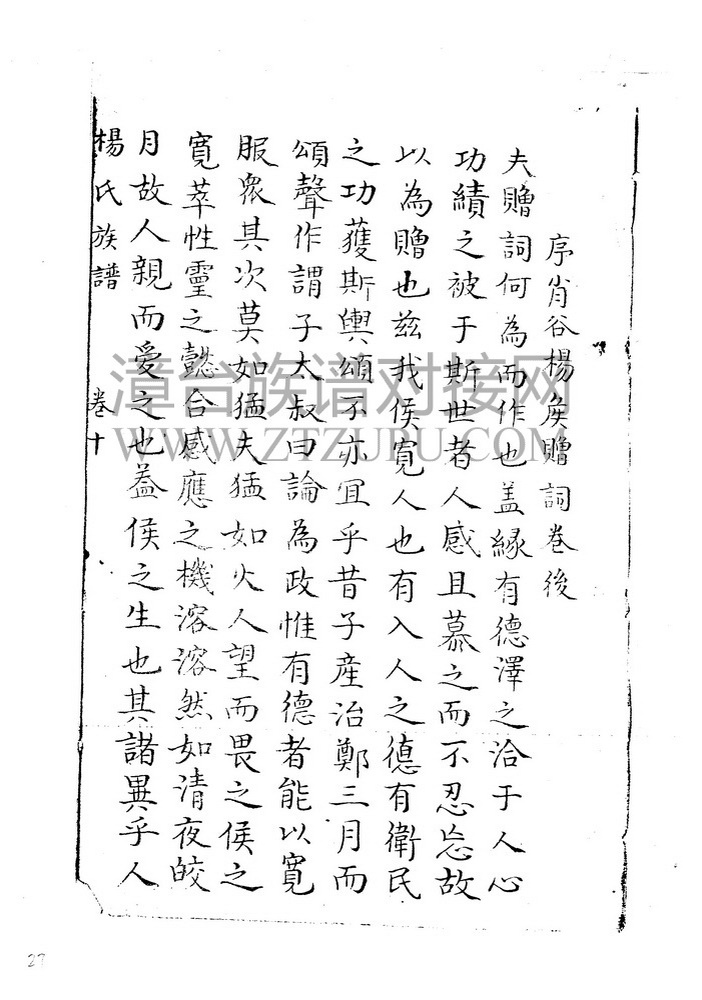 序肖谷楊矦贈詞卷後
夫贈詞何為而作也盖緣有德澤之洽于人心
功績之被于斯世者人感且慕之而不忍忘故
以為贈也兹我侯寬人也有入人之德有衛民
之功獲斯輿頌不亦宜乎昔子產治鄭三月而
頌聲作謂子太叔曰論為政惟有德者能以寬
服眾其次莫如猛夫猛如火人望而畏之侯之
寬萃性靈之懿合感應之機溶溶然如清夜皎
月故人親而愛之也葢侯之生也其諸異乎人
楊氏族譜 卷十
漳台族谱对接网
WWW.ZTZUPU.COM
27